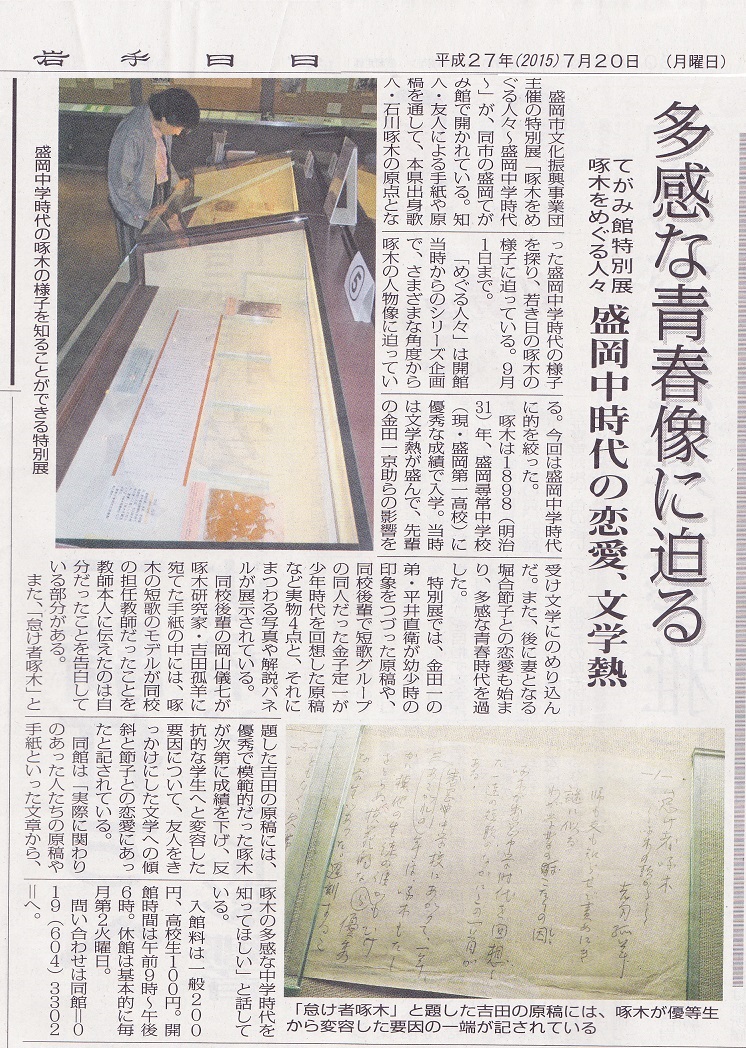 岩手日日
平成27年(2015)7月20日 (月曜日)
多感な青春像に迫る
てがみ館特別展
啄木をめぐる人々
盛岡中時代の恋愛、文学熱
盛岡市文化振興事業団
主催の特別展「啄木をめ
ぐる人々〜盛岡中学時代
〜」が、同市の盛岡てが
み館で開かれている。知
人・友人による手紙や原
稿を通して、本県出身歌
人・石川啄木の原点とな
った盛岡中学時代の様子
を探り、若き日の啄木の
様子に迫っている。9月
1日まで。
「めぐる人々」は開館
当時からのシリーズ企画
で、さまざまな角度から
啄木の人物像に迫ってい
る。今回は盛岡中学時代
に的を絞った。
啄木は1898(明治
31)年、盛岡尋常中学校
(現・盛岡第一高校)に
優秀な成績で入学。当時
は文学熱が盛んで、先輩
の金田一京助らの影響を
受け文学にのめり込ん
だ。また、後に妻となる
堀合節子との恋愛も始ま
り、多感な青春時代を過
した。
特別展では、金田一の
弟・平井直衛が幼少時の
印象をつづった原稿や、
同校後輩で短歌グループ
の同人だった金子定一が
少年時代を回想した原稿
など実物4点と、それに
まつわる写真や解説パネ
ルが展示されている。
同校後輩の岡山儀七が
啄木研究家・吉田孤羊に
宛てた手紙の中には、啄
木の短歌のモデルが同校
の担任教師だったことを
教師本人に伝えたのは自
分だったことを告白して
いる部分がある。
また、「怠け者啄木」と
題した吉田の原稿には、
優秀で模範的だった啄木
が次第に成績を下げ、反
抗的な学生へと変容した
要因について、友人をき
っかけにした文学への傾
斜と節子との恋愛にあっ
たと記されている。
同館は「実際に関わり
のあった人たちの原稿や
手紙といった文章から、
啄木の多感な中学時代を
知ってほしい」と話して
いる。
入館料は一般200
円、高校生100円。開
館時間は午前9時〜午後
6時。休館は基本的に毎
月第2火曜日。
問い合わせは同館=0
19(604)3302
=へ。
盛岡中学時代の啄木の様子を知ることができる特別展
⑤
怠け者啄木
吉田孤羊
「怠け者啄木」と題した吉田の原稿には、啄木が優等生
から変容した要因の一端が記されている